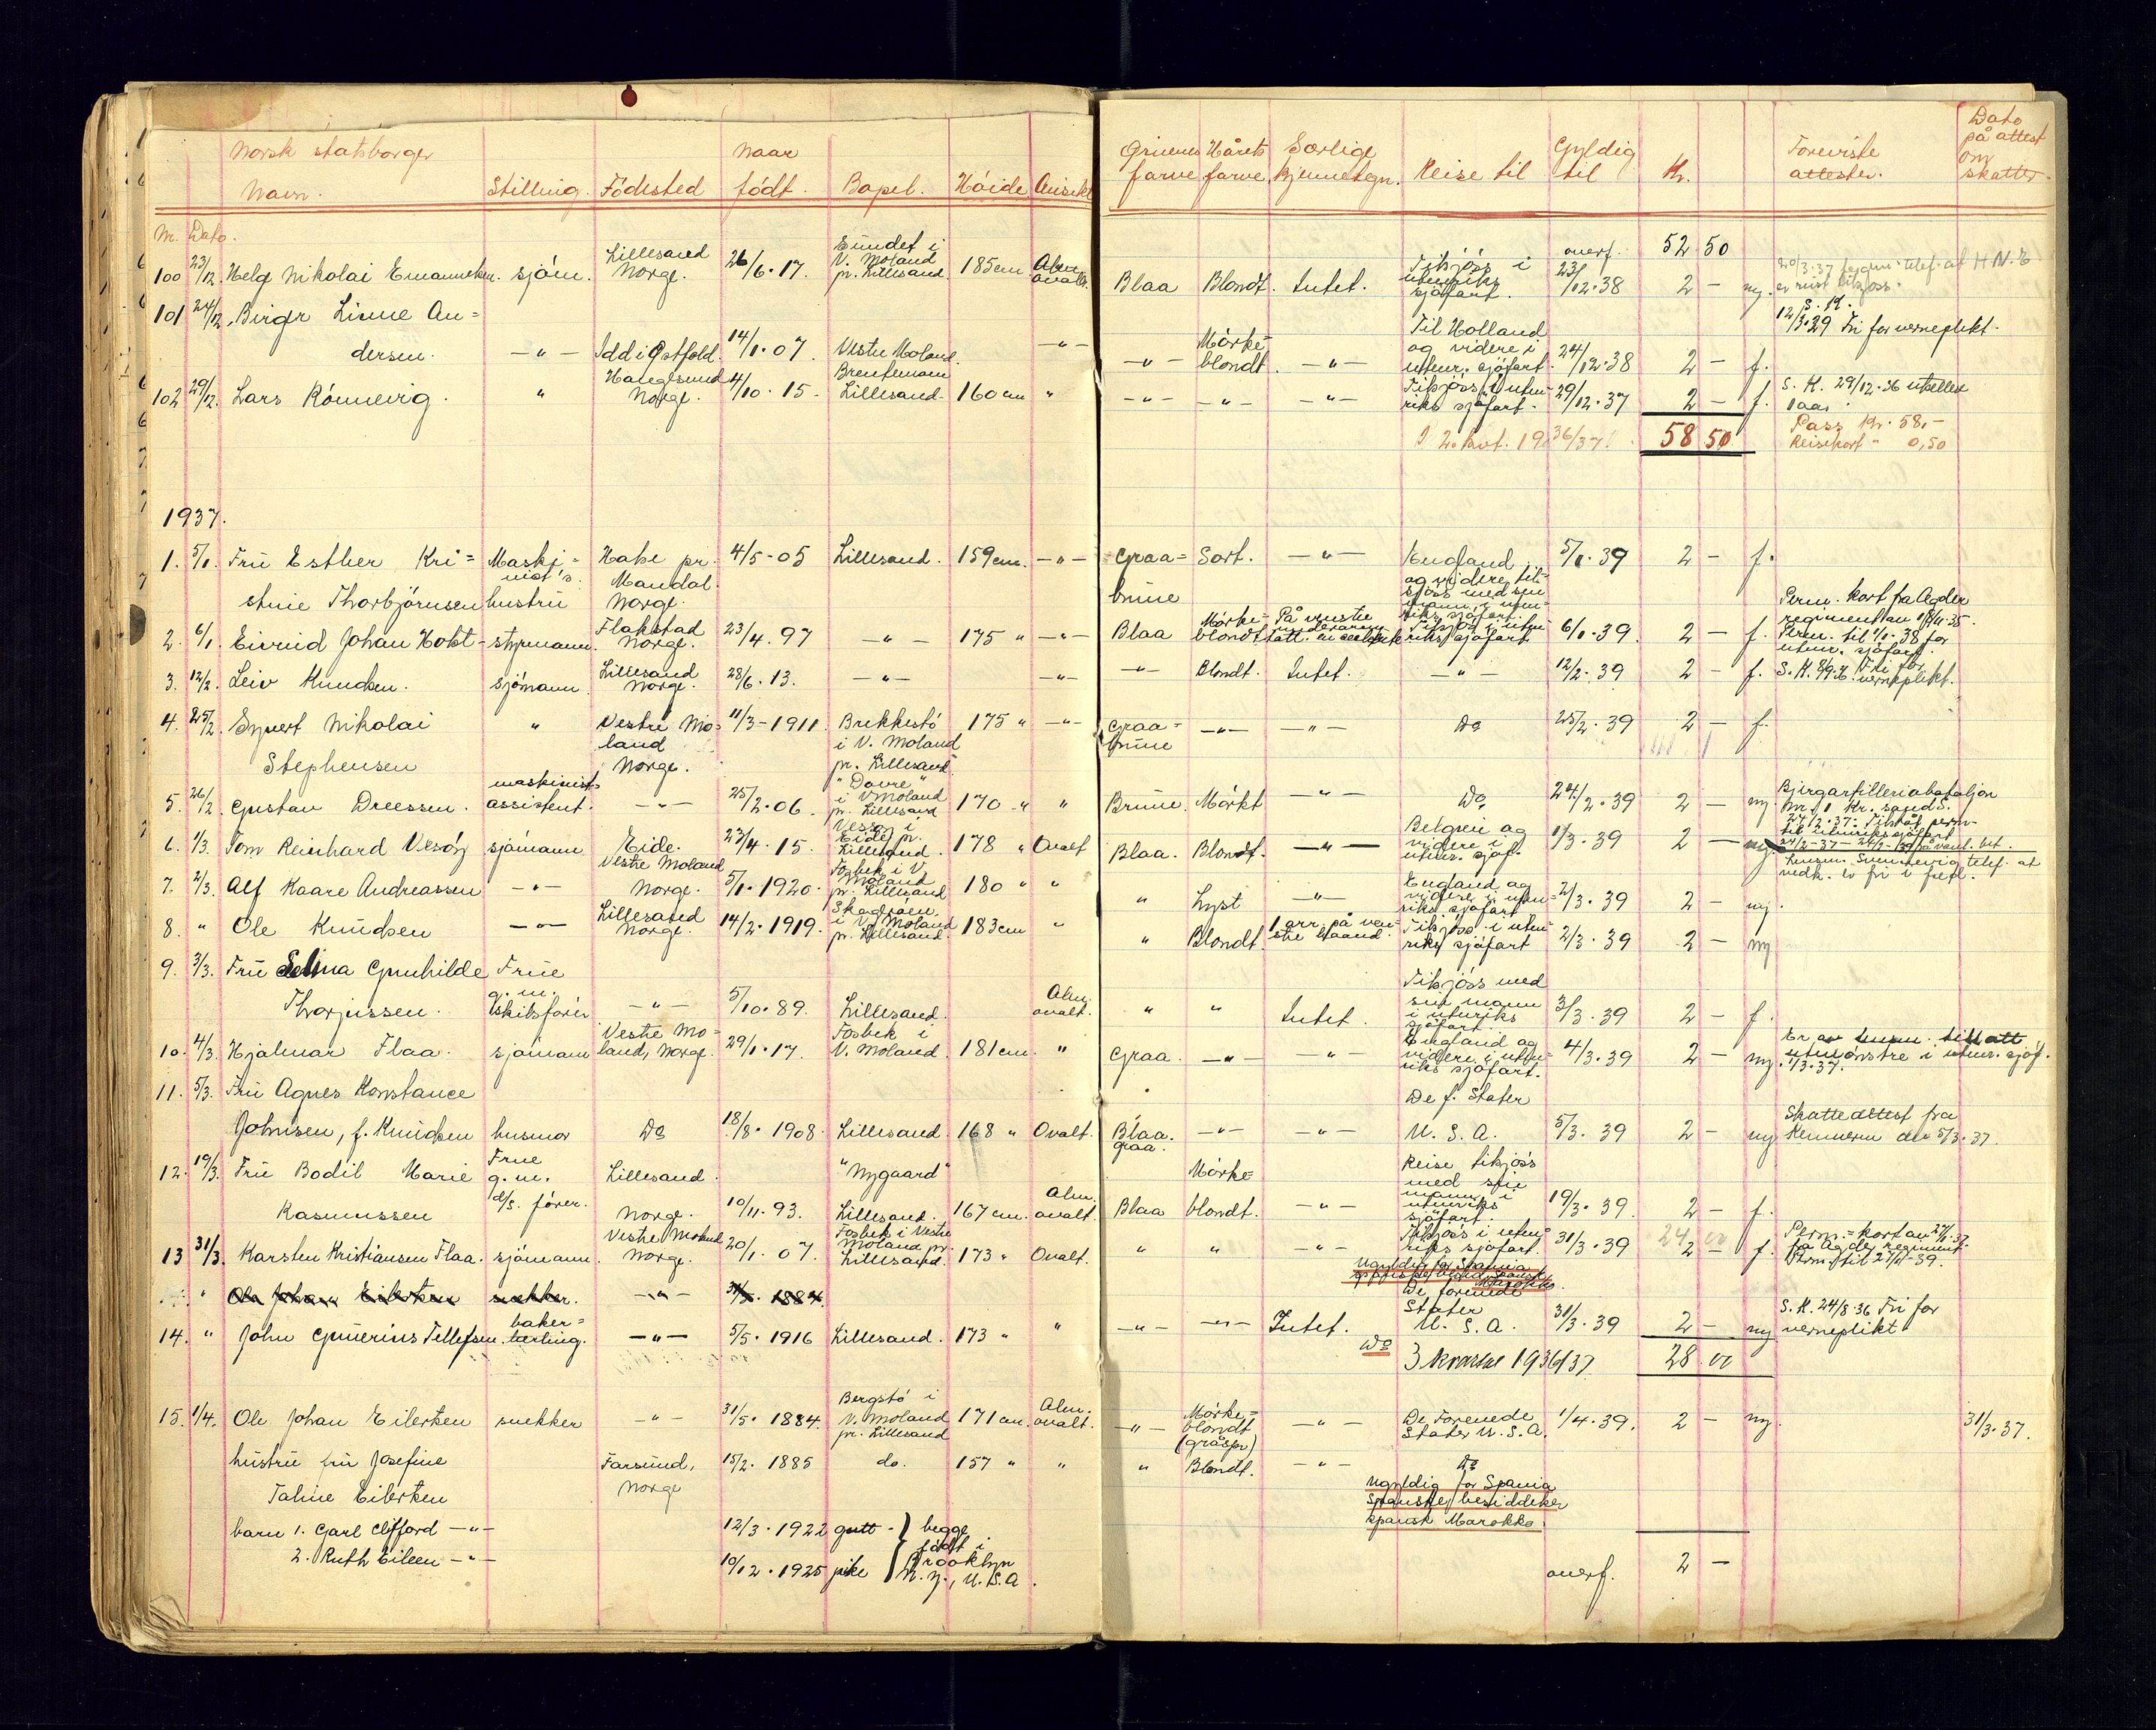 Norsk statsborger
Navn. Stilling. Födested Naar födt. Bopel. Höide Ansikt
Öinenes farve Hårets farve Særlige kjennetegn. Reise til Gyldig til Kr. Foreviste attester. Dato på attest om skatter.
Nr. Dato.
overf. 52 50
100 23/12. Helg Nikolai Emanuelsen. sjöm. Lillesand Norge. 26/6. 17. Sundet i V. Moland pr. Lillesand 185 cm Alm. ovalt. Blaa Blondt. Intet. Tilsjöss i utenriks sjöfart. 23/12. 38 2 - ny.
101 24/12. Birger Linne An=
dersen. -"- Idd i Östfold. 14/1. 07. Vestre Moland. -"- -"- Mörke= blondt -"- Til Holland og videre i utenr. sjöfart. 24/12. 38 2 - f. S. K. 12/3. 29 Fri for verneplikt.
102 29/12. Lars Rönnevig. " Haugesund Norge. 4/10. 15. Lillesand. 160 cm " -"- -"- -"- Tilsjöss i uten= riks sjöfart. 29/12. 37 2 - f. S. K. 29/12. 36 utsettes 1 aar.
I 2. kvt. 1936/37. 58 50 Pass kr. 58,-
Reisekort " 0,50
1937.
1. 5/1. Fru Esther Kri= Maski= nist's Hake pr. 4/5 - 05 Lillesand. 159 cm. -"- Graa= Sort. -"- England 5/1. 39 2 - f.
stine Thorbjörnsen hustru Mandal. Norge. brune og videre til= sjöss med sin mann i uten= riks sjöfart.
2. 6/1. Eivind Johan Holst - styrmann. Flakstad Norge. 23/4. 97 -"- 175 " -"- Blaa Mörke= blondt På venstre underarm tatt. Tilsjöss i uten= riks sjöfart 6/1. 39. 2 - f. Perm. kort fra Agder regiment av
Perm. til 1/1. 38 for utenr. sjöfart.
3. 12/2. Leiv Knudsen. sjömann. Lillesand Norge. 28/6. 13. -"- -"- -"- Blondt. Intet. -"- 12/2. 39 2 - f. S. K. Fri for verneplikt.
4. 25/2. Syvert Nikolai " Vestre Mo= 11/3 - 1911 Brekkestö 175 " -"- Graa= -"- -"- Do 25/2. 39 2 - f.
Stephensen land Norge. i V. Moland pr. Lillesand. brune
5. 26/2 Gustav Dreessen. maskinist= assistent. -"- 25/2. 06. "Dovre" i V Moland pr. Lillesand 170 " " Brune. Mörkt -"- Do 24/2. 39 2 - ny. Bjergartilleribataljon Nr. 1 Kr. sand S.
24/2. 37. Tilståt perm. til utenriks sjöfart
6. 1/3. Tom Reinhard Vesöy sjömann Eide. 23/4. 15. Vesöy i Eide pr. Lillesand. 178 " Ovalt Blaa. Blondt. -"- Belgien og videre i utenr. sjöf. 1/3. 39 2 - ny.
7. 2/3. Alf Kaare Andreassen -"- Vestre Moland Norge. 5/1. 1920. Fosbek i V Moland pr. Lillesand 180 " " " Lyst -"- England og videre i uten= riks sjöfart 2/3. 39 2 - ny.
8. " Ole Knudsen -"- Lillesand Norge. 14/2. 1919. i V. Moland pr. Lillesand. 183 cm " " Blondt. 1 arr på ven= stre haand. Tilsjöss i uten= riks sjöfart 2/3. 39 2 - ny
9. 3/3. Fru Selma Gunhilde Frue
Thorjussen. g. m. skibsförer -"- 5/10. 89. Lillesand. Alm. ovalt. " " Intet. Tilsjöss med sin mann i utenriks sjöfart. 3/3. 39 2 - f.
10. 4/3. Hjalmar Flaa. sjömann Vestre Mo= land, Norge. 29/1. 17. Fosbek i V. Moland. 181 cm. " Graa. -"- -"- England og videre i uten= riks sjöfart. 4/3. 39 2 - ny. Er av tillatt utmönstre i utenr. sjöf. 1/3. 37.
11. 5/3. Fru Agnes Konstance De f. Stater
Johnsen, f. Knudsen husmor Do 18/8. 1908. Lillesand. 168 " Ovalt. Blaa. graa. -"- -"- U. S. A. 5/3. 39 2 - ny Skatteattest fra Kemneren av 5/3. 37.
12. 19/3. Fru Bodil Marie Frue g. m. Lillesand. "Nygaard" Mörke= Reise tilsjöss
Rasmussen d/s. förer. Norge. 10/11. 93. Lillesand. 167 cm. Alm. ovalt. Blaa blondt. -"- med sin mann i utenriks sjöfart. 19/3. 39 2 - f.
13 31/3. Karsten Kristiansen Flaa. sjömann. Vestre Moland Norge. 20/1. 07. Fosbek i Vestre Moland pr. Lillesand. 173 " Ovalt. " " -"- Tilsjöss i uten= riks sjöfart. 31/3. 39 2 - f. Perm.= kort av fra Agder regiment. Perm. til
Ugyldig for Spania
" Ole Johan Eilertsen snekker. -"- 31/5. 1884.
14. " John Gunerius Tellefsen baker= lærling. -"- 5/5. 1916 Lillesand. 173 " " -"- -"- Intet. De forenede Stater U. S. A. 31/3. 39 2 - ny S. K. 24/8. 36 Fri for verneplikt
Do 3 kvartal 1936/37 28 00
15. 1/4. Ole Johan Eilertsen snekker -"- 31/5. 1884. Bergstö i V. Moland pr. Lillesand 171 cm. Alm. ovalt. -"- Mörke= blondt (gråspr) -"- De Forenede Stater U. S. A. 1/4. 39. 2 - ny. 31/3. 37.
hustru fru Josefine Farsund, 15/2. 1885 do. 157 " " " Blondt. -"- Do
Taline Eilertsen Norge Ugyldig for Spania
Spanske besiddelser
spansk Marokko.
barn 1. Carl Clifford -"- 12/3. 1922 gutt. } begge född i
2. Ruth Eileen -"- 10/12. 1925 pike } Brooklyn N. Y., U. S. A.
overf. 2 -